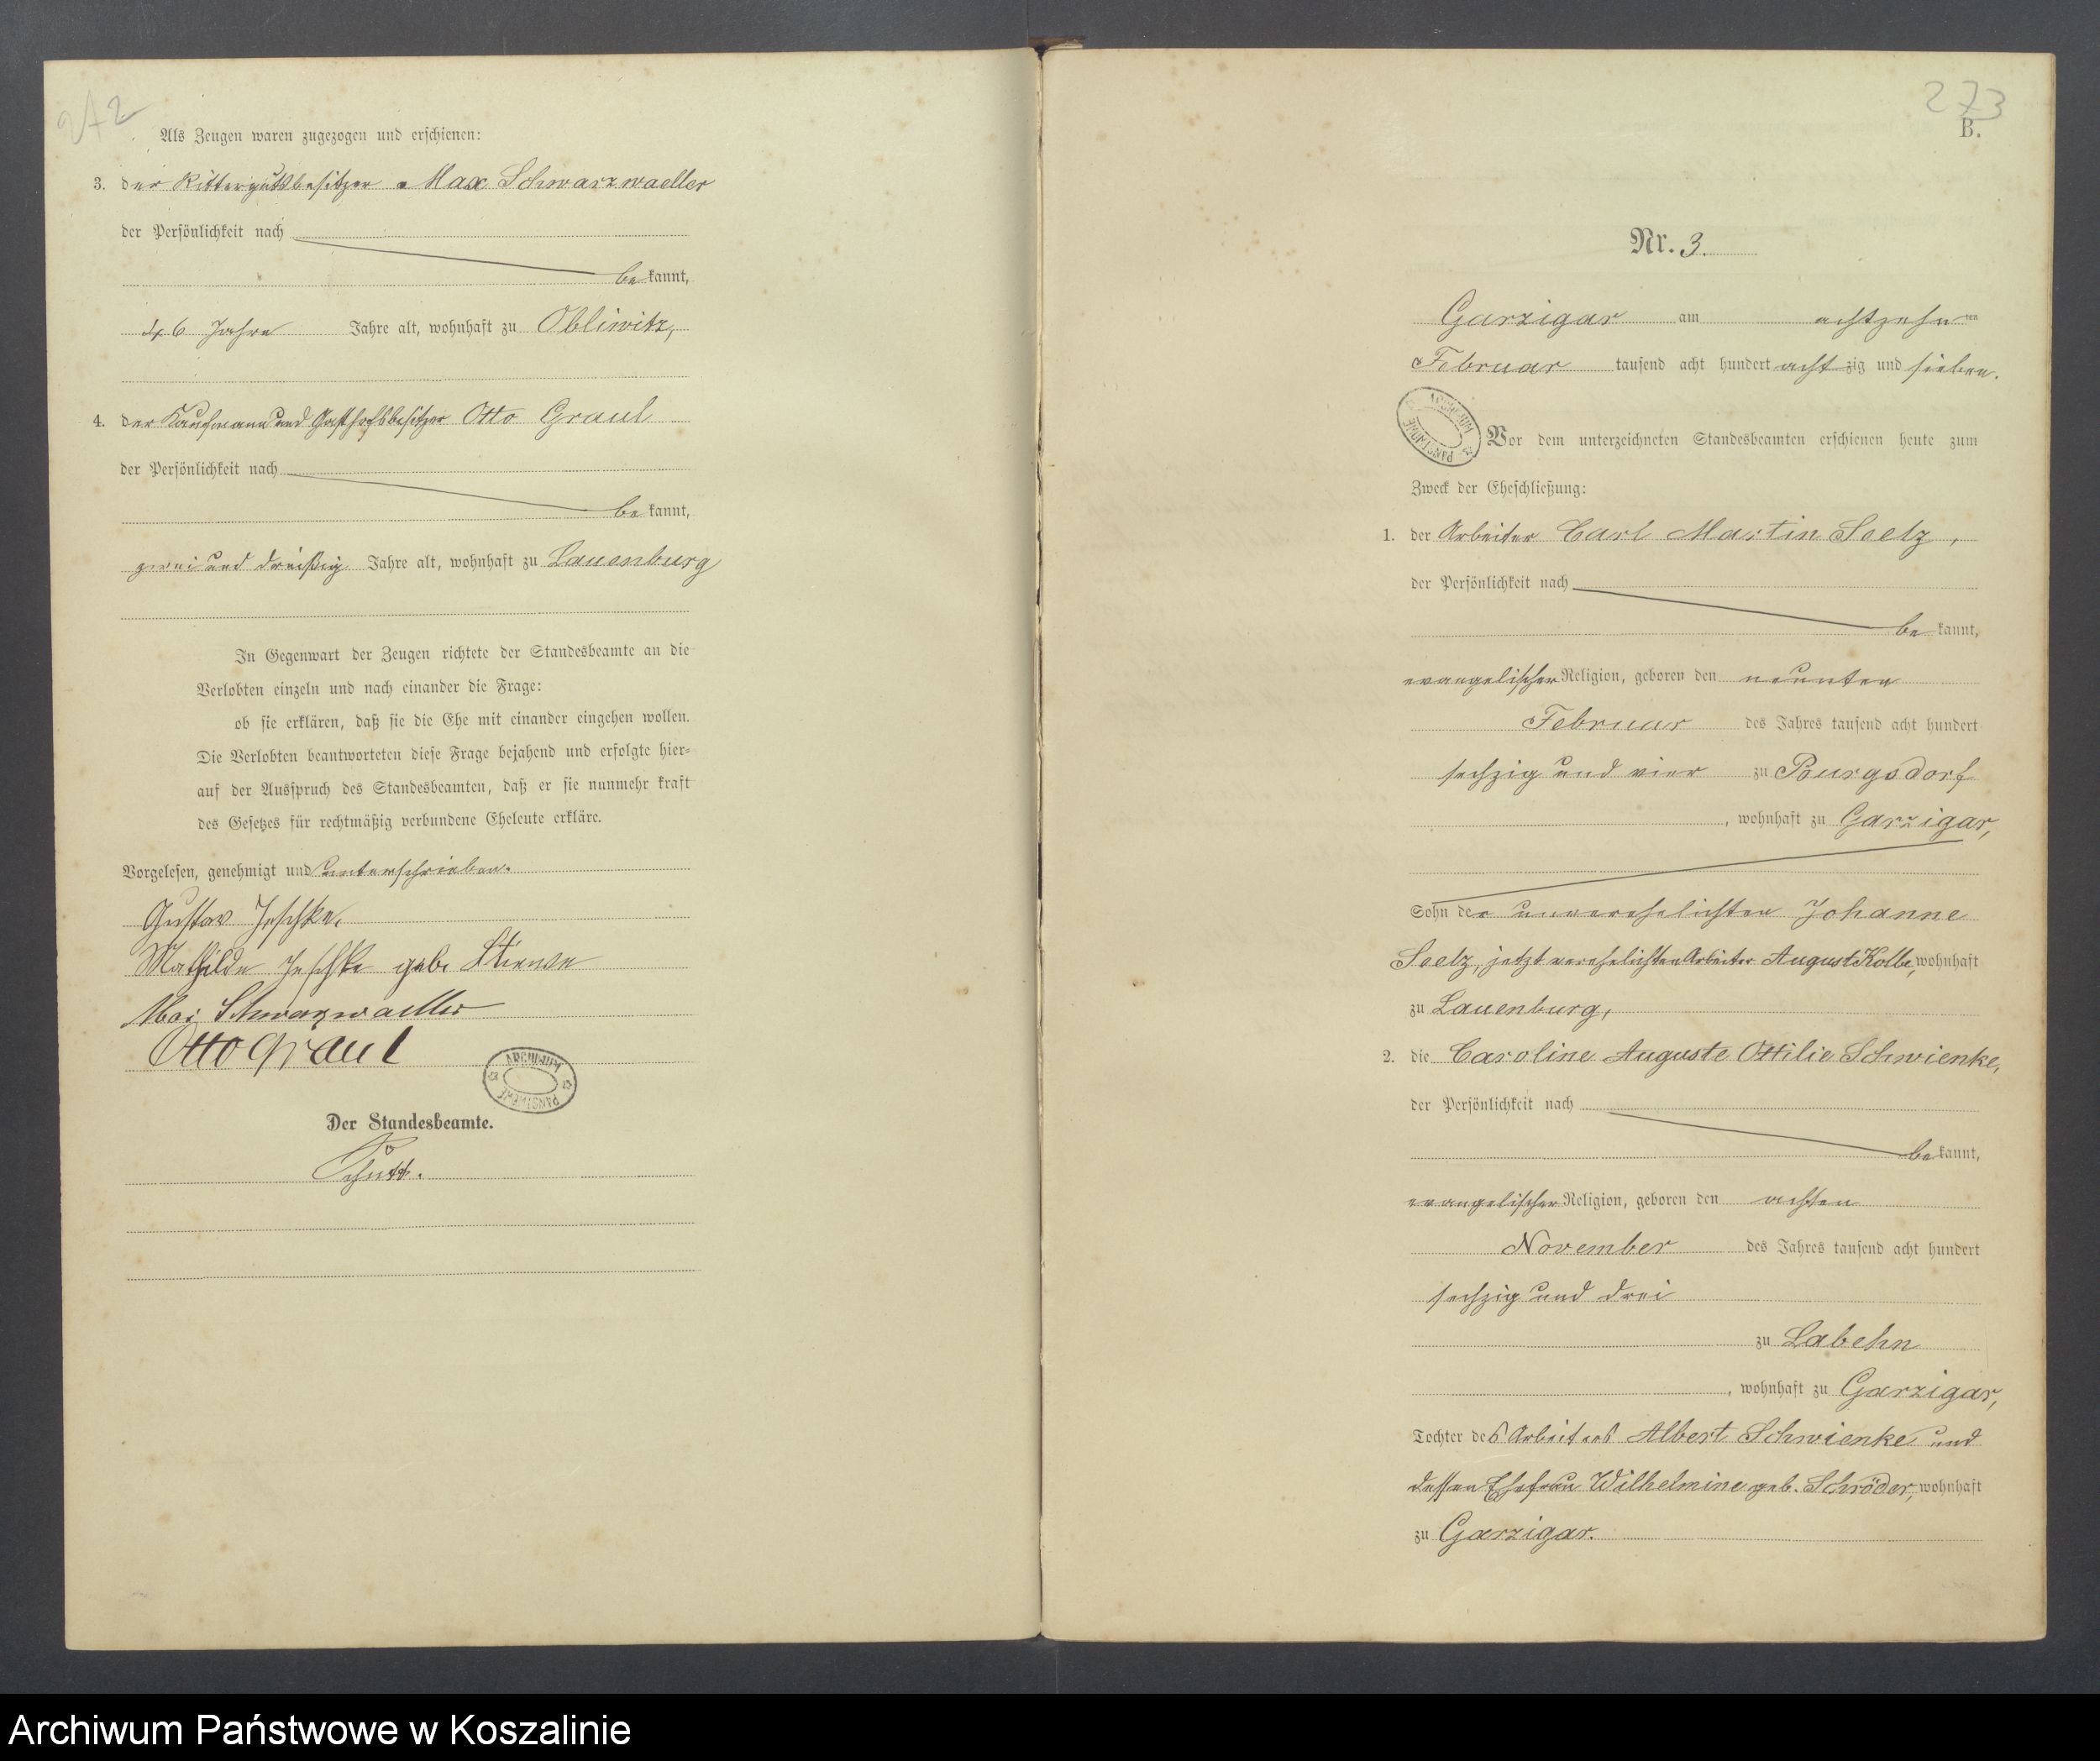 242
Als Zeugen waren zugezogen und erschienen:
3. der Rittergutsbesitzer Max Schwarzwaeller
der Persönlichkeit nach
be kannt,
46 Jahre Jahre alt, wohnhaft zu Obliwitz,
4. der Kaufmann und Gasthofsbesitzer Otto Graul
der Persönlichkeit nach
be kannt,
zwei und dreißig Jahre alt, wohnhaft zu Lauenburg
In Gegenwart der Zeugen richtete der Standesbeamte an die
Verlobten einzeln und nach einander die Frage:
ob sie erklären, daß sie die Ehe mit einander eingehen wollen.
Die Verlobten beantworteten diese Frage bejahend und erfolgte hier-
auf der Ausspruch des Standesbeamten, daß er sie nunmehr kraft
des Gesetzes für rechtmäßig verbundene Eheleute erkläre.
Vorgelesen, genehmigt und unterschrieben.
Gustav Jeschke.
Mathilde Jeschke geb. Stiewe
Max Schwarzwaeller
Otto Graul
ARCHIWUM PAŃSTWOWE
Der Standesbeamte.
273
B.
Nr. 3.
Garzigar am achtzehn ten
Februar tausend acht hundert acht zig und sieben.
ARCHIWUM PAŃSTWOWE
Vor dem unterzeichneten Standesbeamten erschienen heute zum
Zweck der Eheschließung:
1. der Arbeiter Carl Martin Seelz,
der Persönlichkeit nach
be kannt,
evangelischer Religion, geboren den neunten
Februar des Jahres tausend acht hundert
sechzig und vier zu Bourgsdorf
, wohnhaft zu Garzigar,
Sohn der unverehelichten Johanne
Seelz, jetzt verehelichten Arbeiter August Kolbe, wohnhaft
zu Lauenburg,
2. die Caroline Auguste Ottilie Schwienke,
der Persönlichkeit nach
be kannt,
evangelischer Religion, geboren den achten
November des Jahres tausend acht hundert
sechzig und drei
zu Labehn
, wohnhaft zu Garzigar,
Tochter des Arbeiters Albert Schwienke und
dessen Ehefrau Wilhelmine geb. Schröder, wohnhaft
zu Garzigar.
Archiwum Państwowe w Koszalinie